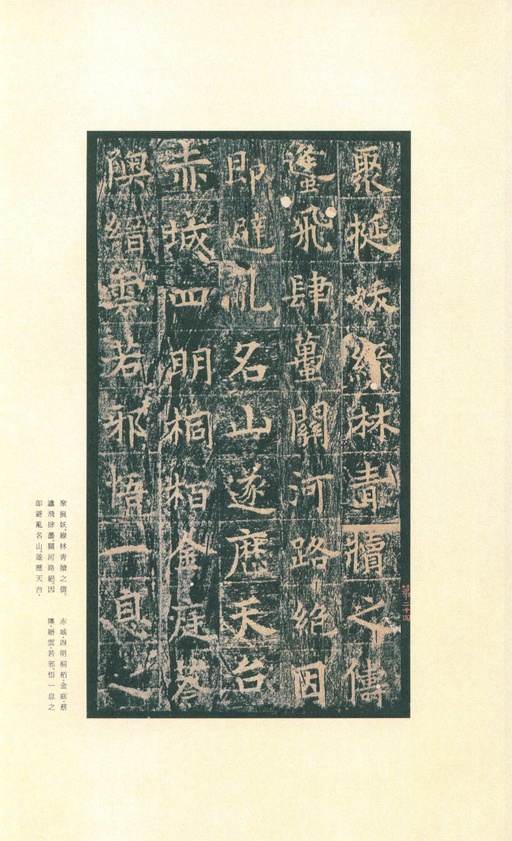 聚挻妖綠林青犢之儔
蠭飛肆蠆關河路絕因
即避亂名山遂歷天台
赤城四明桐栢金庭蔡
隩縉雲若邪悟一息之
聚挻妖。綠林青犢之儔。
蠭飛肆蠆。關河路絕。因
即避亂名山。遂歷天台。
赤城。四明。桐柏。金庭。蔡
隩。縉雲。若邪。悟一息之